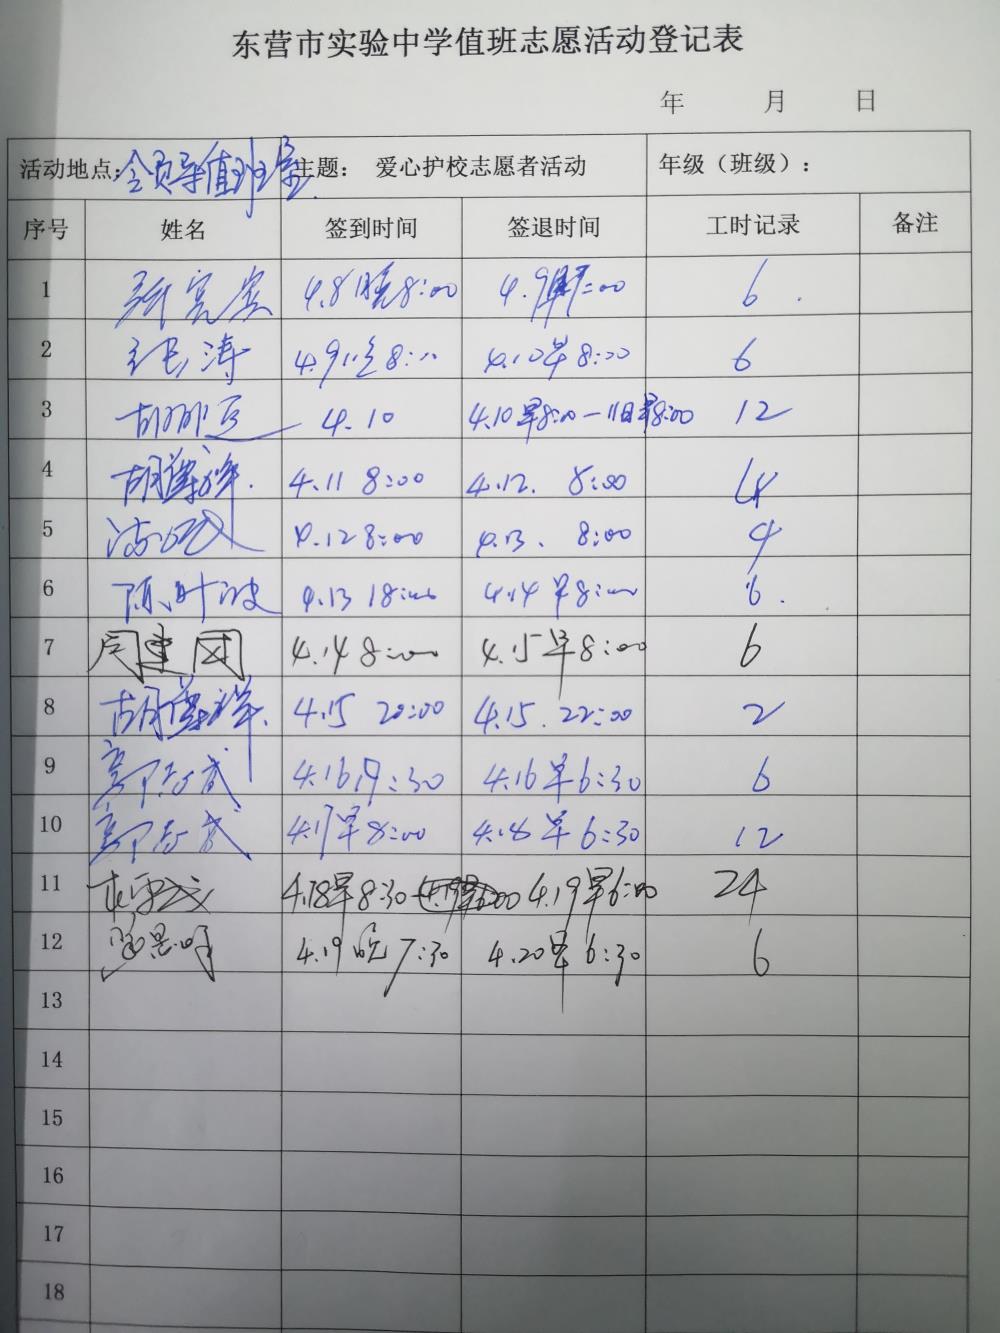 东营市实验中学值班志愿活动登记表
年 月 日
活动地点: 主题： 爱心护校志愿者活动 年级（班级）：
序号 姓名 签到时间 签退时间 工时记录 备注
1 4.8晚8:00 4.9早7:00 6
2 张涛 4.9晚8:00 4.10早8:00 6
3 4.10 4.10早8:00-11日早8:00 12
4 4.11 8:00 4.12. 8:00
5 4.12 8:00 4.13. 8:00 4
6 4.13 18:00 4.14早8:00 6.
7 周建团 4.14 8:00 4.15早8:00 6
8 4.15 20:00 4.15. 22:00 2
9 4.16 :30 4.16早6:30 6
10 4.17早8:00 4.18早6:30 12
11 4.18早8:30 4.19早6:00 24
12 4.19晚7:30 4.20早6:30 6
13
14
15
16
17
18